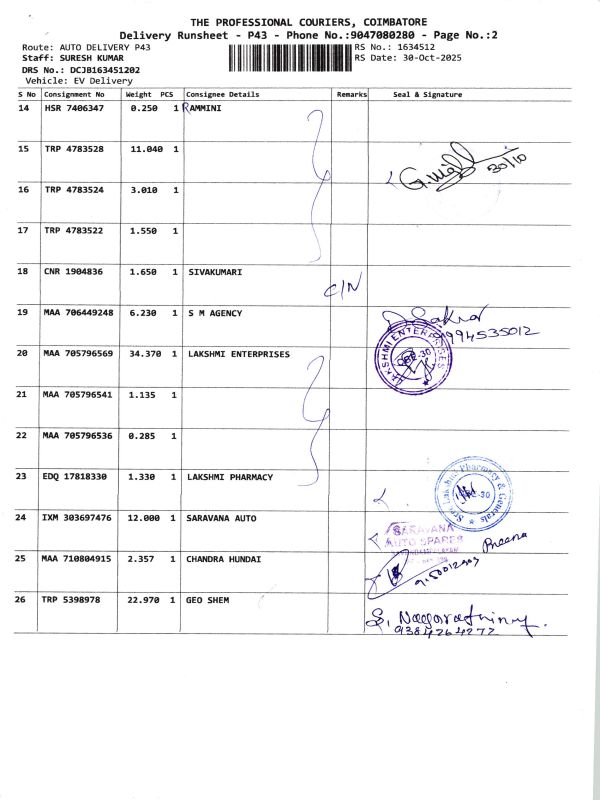 THE PROFESSIONAL COURIERS, COIMBATORE
Delivery Runsheet - P43 - Phone No.:9047080280 - Page No.:2
Route: AUTO DELIVERY P43
RS No.: 1634512
Staff: SURESH KUMAR
RS Date: 30-Oct-2025
DRS No.: DCJB163451202
Vehicle: EV Delivery
S No Consignment No Weight PCS Consignee Details Remarks Seal & Signature
14 HSR 7406347 0.250 1 RAMMINI
15 TRP 4783528 11.040 1
30/10
16 TRP 4783524 3.010 1
17 TRP 4783522 1.550 1
18 CNR 1904836 1.650 1 SIVAKUMARI C/N
19 MAA 706449248 6.230 1 S M AGENCY
9994535012
20 MAA 705796569 34.370 1 LAKSHMI ENTERPRISES
LAKSHMI ENTERPRISES
CBE-30
21 MAA 705796541 1.135 1
22 MAA 705796536 0.285 1
23 EDQ 17818330 1.330 1 LAKSHMI PHARMACY
Sree Lakshmi Pharmacy & Generals
24 IXM 303697476 12.000 1 SARAVANA AUTO
SARAVANA
AUTO SPARES
25 MAA 710804915 2.357 1 CHANDRA HUNDAI
26 TRP 5398978 22.970 1 GEO SHEM
9384264277